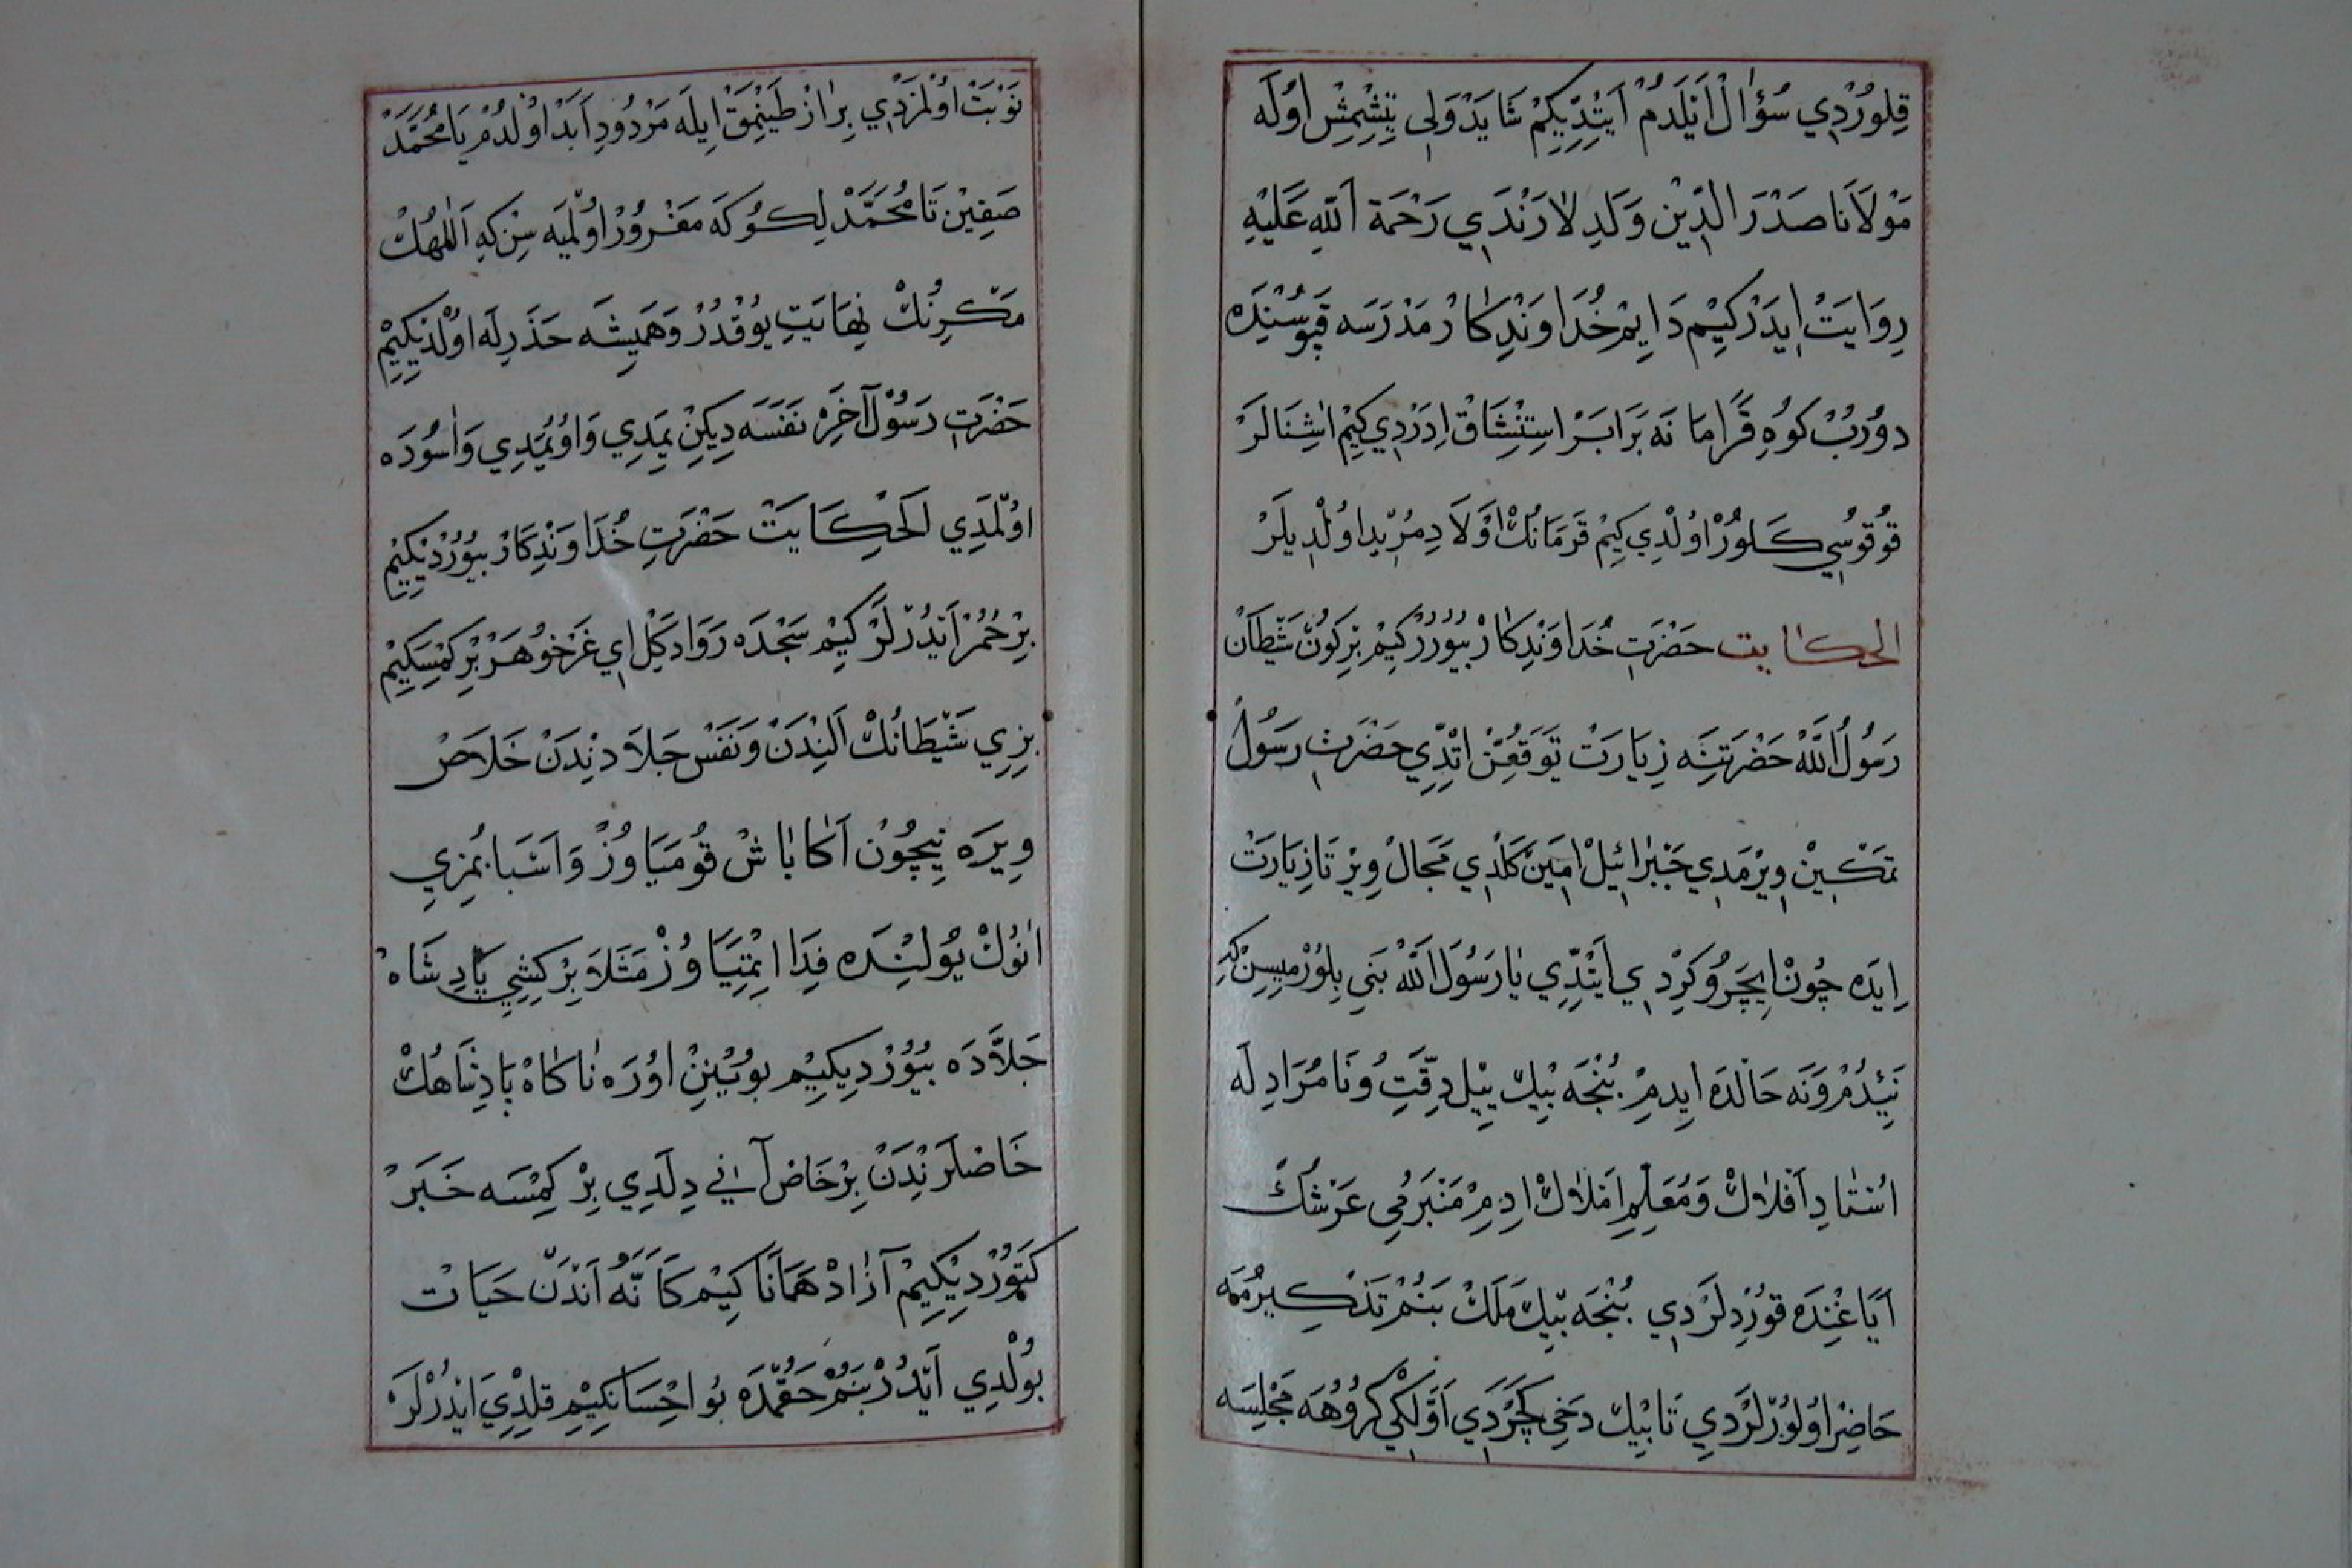 قِلورُدِي سُؤَالْ اَيْلَدُمْ اَيتْدِيكِمْ شَايَدْ وَلِى يَتِشْمِشْ اوُلَه
مَوْلَانَا صَدْرَ الدِّيْن وَلَدِ لارَنْدَيِ رَحْمَة اَللّٰهِ عَلَيْهِ
رِوَايَتْ اِيدَرْكِيْم دَايِمْ خُدَاوَنْدِكَارْ مَدْرَسَه قَپُوسُنْدَه
دورُبْ كوُهِ قَرَامَانَه بَرَابَرْ اسِتِنْشَاقْ اِدَرْدِي كِيمْ اشِنَالَرْ
قوُقوُسِي كَلوُرْ اوُلْدِي كِيمْ قَرَمَانُكْ اَوْلَادِ مُرْيدِ اوُلْدِيلَرْ
الحكايت حَضْرَتِ خُدَاوَنْدِكَارْ بيُوُرُرْ كِيمْ بْرِكُونْ شَّيْطَانْ
رَسُولُ اللّٰهْ حَضْرَتِنَه زِيَارَتْ تَوَقعُّنْ اتِدِّي حَضْرَتِ رَسُولْ
تمَكْيِنْ وِيرْمَدِي جَبْرَائِيلْ اَمِينْ كَلْدِي مَجَالْ وِيرْ تَا زِيَارَتْ
اِيدَه چُونْ اِيچَرُو كِرْدِي اَيتْدِّي يَا رَسُولَ اللّٰهْ بَنِي بِلوُرْمِيسِنْ كِه
نَيِدُمْ وَنَه حَالْدَه اِيدِمِ بُنْجَه بْيِكْ يِيْل دِقّتِ وُنَا مُرَادِلَه
اسُتَادِ اَفلَاكْ وَمُعَلِّمِ اَمْلَاكْ ادِمِ مْنبَرمُيِ عَرْشُكْ
اَيَاغِنْدَه قورُدِلَرْدِي بُنْجَه بْيِكْ مَلَكْ بَنُمْ تَذْكِيرُمَه
حَاضِرْ اوُلوُرْلَرْدِي تَا بْيِكْ دَخِي كَچَرْدِي اَوَّلْكِي كرُوُهَه مَجْلِسَه
نَوْبَتْ اوُلمَزْدِي بِرْ اَزْ طَيَنْمَقْ اِيلَه مَرْدُودِ اَبَدْ اوُلدُمْ يَا مُحَمَّدْ
صَقِيْن تَا مُحَمَّدْلِكوُكَه مَغْرُورْ اوُلْميَه سِنْ كَهِ اَللّٰهُكْ
مَكْرِنُكْ نِهَايَتِ يوُقْدُرْ وَهَمِيشَه حَذَرِلَه اوُلْدِيكِيمْ
حَضْرَتِ رَسُولْ آخِرْ نَفَسَه دِيكِنْ يمِدِي وَاوُيُمَدِي وَاٰسُودَه
اوُلْمَدِي الحَكِايَتْ حَضْرَتِ خُدَاوَنْدِكَارْ بيُوُرْدِيكِيْم
بِرْ حُمُرْ اَيْدُرْلَرْ كِيْم سَجْدَه رَوَا دَكِلْ اِيِ غَرْخوُ هَرْ بْرِ كمْسَكِيْم
بِزِي شَّيْطَانُكْ اَلنِدَنْ وَنَفَسْ جَلاَدنِدَنْ خَلَاصْ
وِيرَه نِيچُونْ آكَا بَاشْ قُومَيَاوُزْ وَاَسَبَابُمِزِي
انوُكْ يُولِنْدَه فِدَا اِيْتمِيَاوُزْ مَثَلَا بِرْكِشِي پَادِشَاهْ
جَلَّادَه بيُوُرْدِيكِيْم بوُيْنِنْ اوُرَه نَاكَاهْ پَادِشَاهُكْ
خَاصْلَرنْدَنْ بِرْخَاصْ آنِي دِلَدِي بِرْ كِمْسَه خَبَرْ
كَتوُرْدِيكِيمْ آزَادْ هَمَانَا كِيْم كَانَّهُ اَندَنْ حَيَاتْ
بوُلْدِي اَيْدُرْ بَنُمْ حَقّمُدَه بوُ احِْسَانكِيْم قلِدِيَ ايْدُرْلَرْ